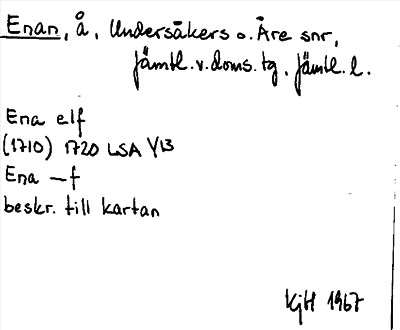 Enan, å, Undersåkers o. Åre snr,
Jämtl. v. doms. tg, Jämtl. l.
Ena elf
(1710) 1720 LSA Y13
Ena —f
beskr. till kartan
KjH 1967